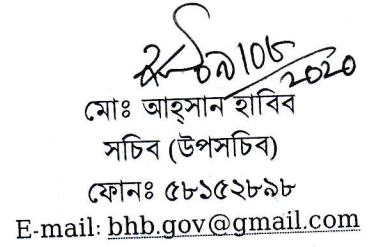 2020
মোঃ আহ্সান হাবিব
সচিব (উপসচিব)
ফোনঃ ৫৮১৫২৮৯৮
E-mail: bhb.gov@gmail.com